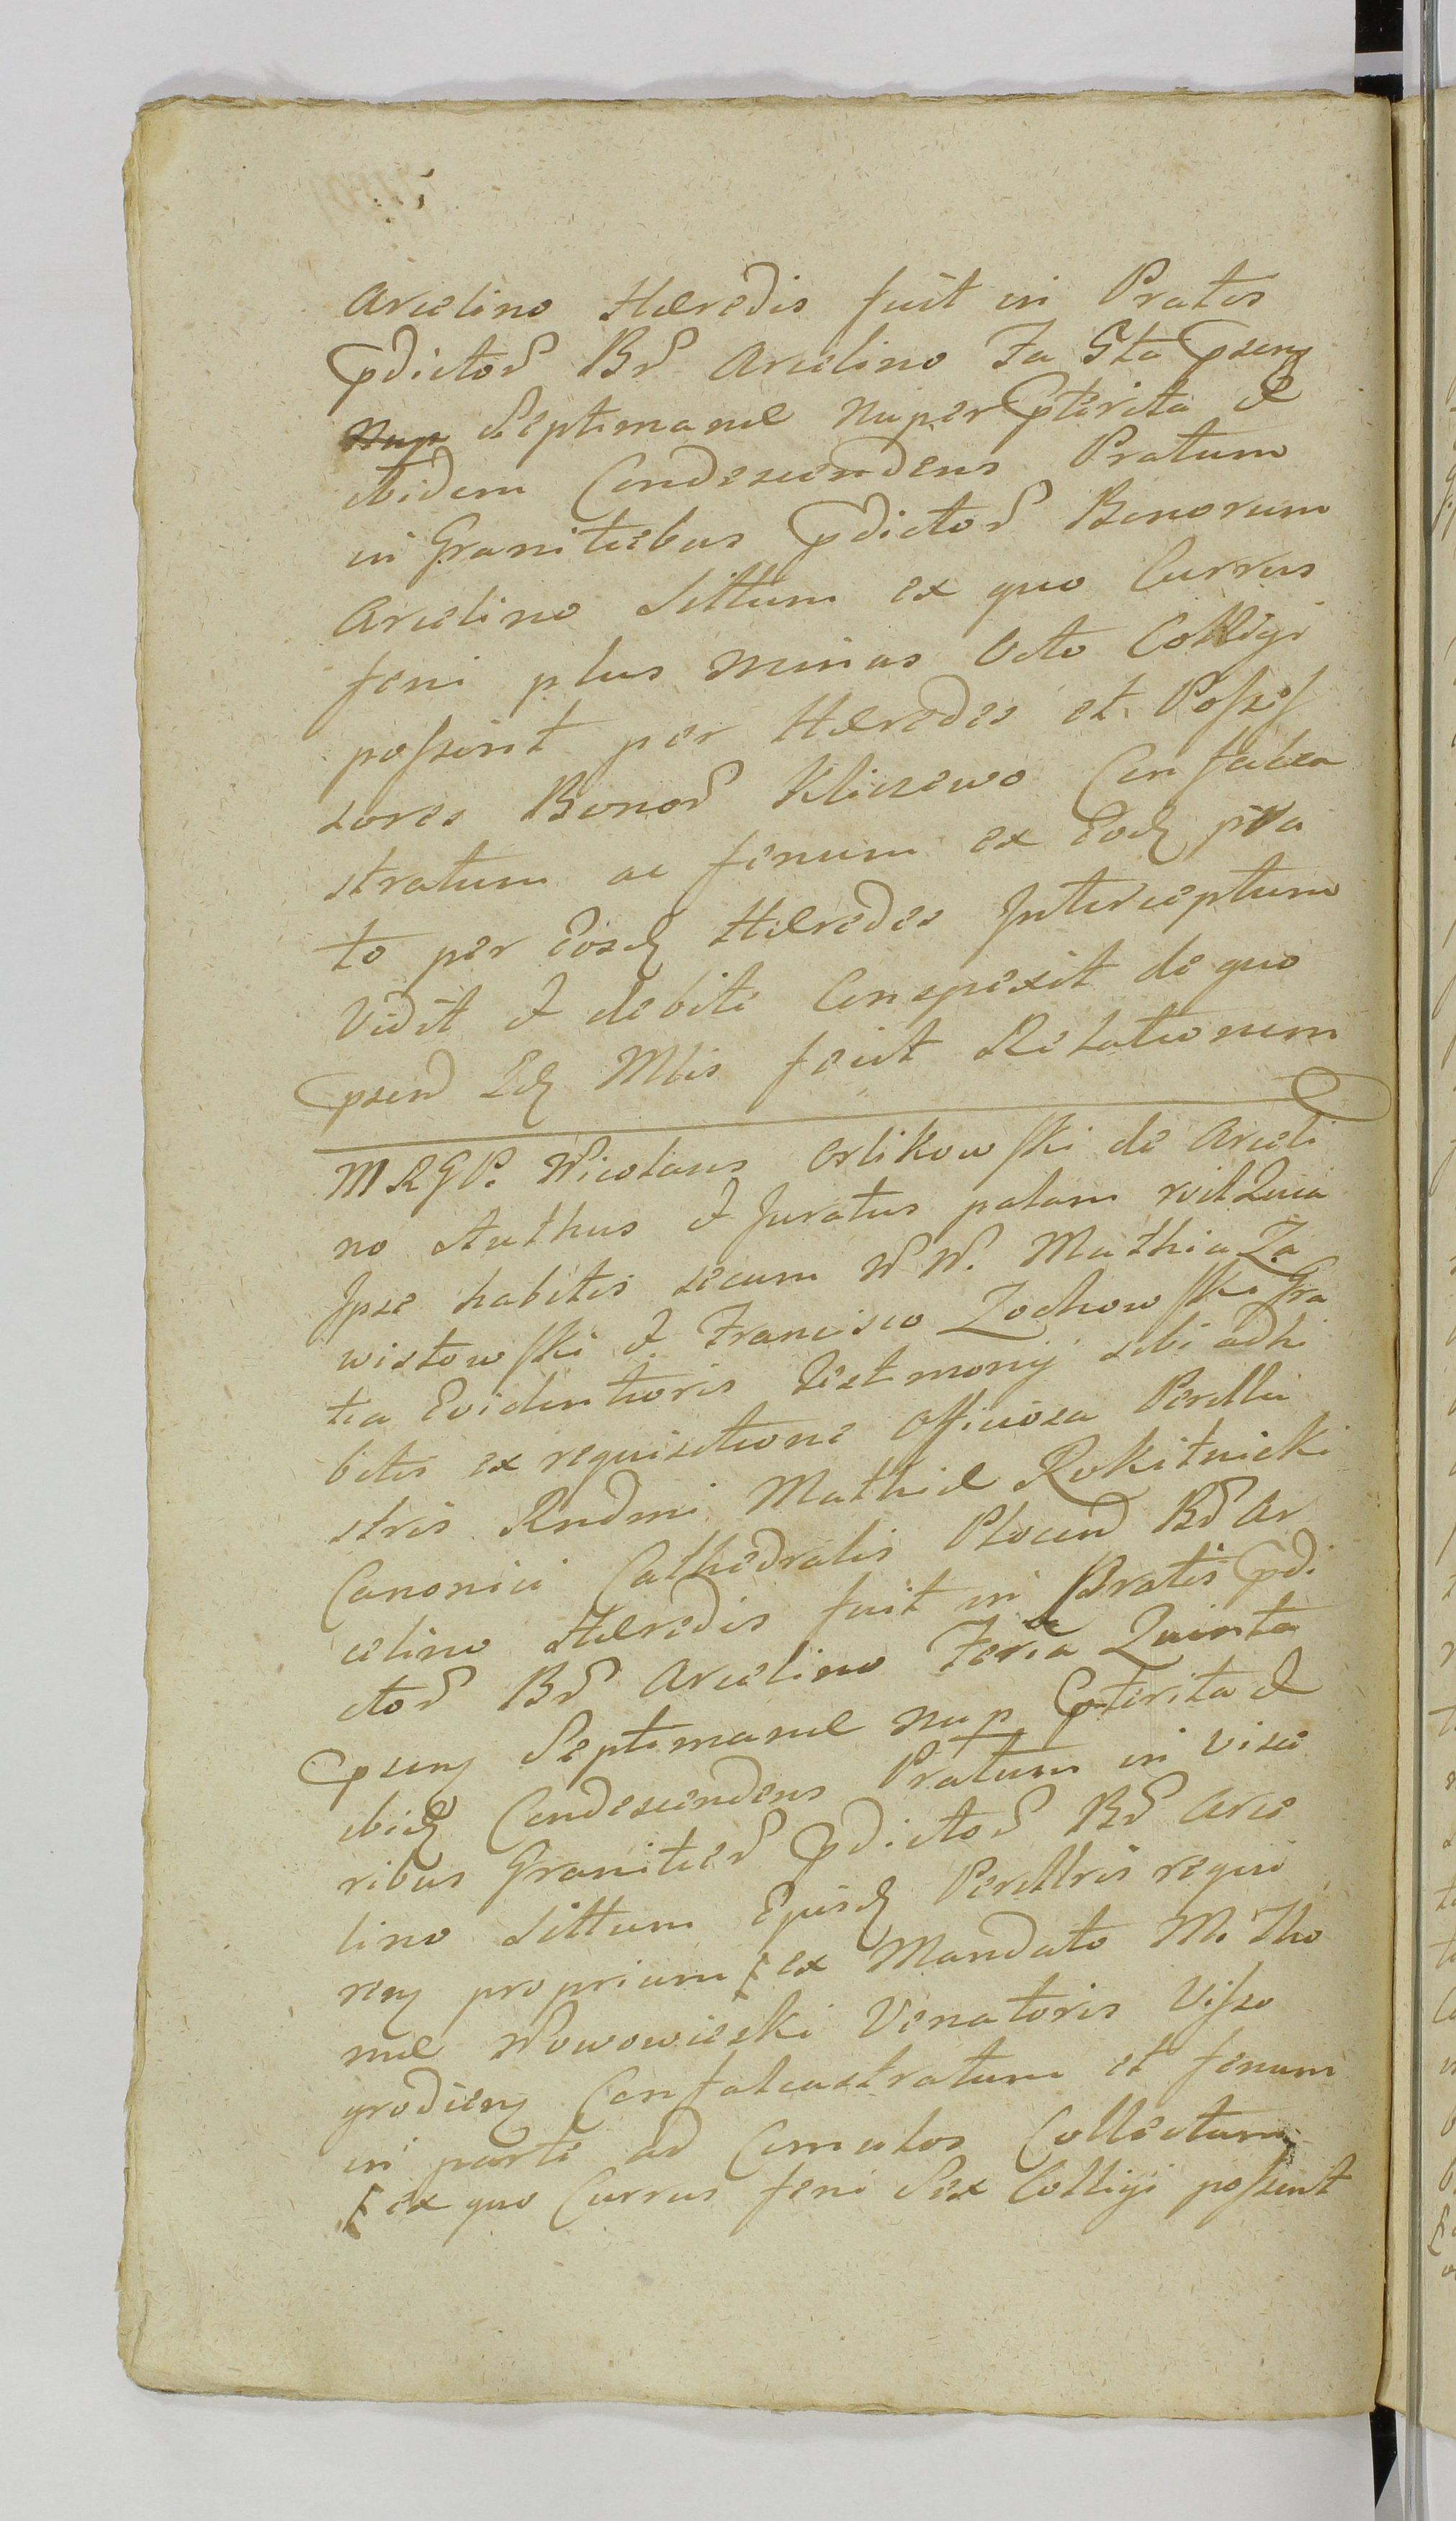 Arcelino Hæredis fuit in Pratis
pdictoȓ Bȓ Arcelino Fa 5ta psenʒ
Nup Septimanæ nuper pterita &
ibidem Condescendens Pratum
in Granitiebus pdictoȓ Bonorum
Arcelino Sittum ex quo Currus
feni plus minus Octo Colligi
possint per Hæredes et Posses
sores Bonoȓ Kliczewo Confalca
stratum ac fenum ex Eodʒ pra
to per Eosdʒ Hæredes Interceptum
Vidit & debite Conspexit de quo
psenʒ Edʒ Mlis fecit Relationem
MRGP. Nicolaus Orlikowski de Arceli
no Authus & Juratus palam rvit Quia
Ipse habitis secum NN. Mathia Za
wistowski & Francisco Zochowski Gra
tia Evidentioris Testimonij sibi adhi
bitis ex requisitione Officiosa Perillu
stris Rndmi Mathiæ Rokitnicki
Canonici Cathedralis Plocen Bȓ Ar
celino Hæredis fuit in Pratis pdi
ctoȓ Bȓ Arcelino Feria Quinta
psenʒ Septimanæ nup pterita &
ibidʒ Condescendens Pratum in visce
ribus Granitieȓ pdictoȓ Bȓ Arce
lino Sittum Ejusdʒ Perillris requi
renʒ proprium ex Mandato M. Tho
mæ Nowowieski Venatoris Visso
grodienʒ Confalcastratum et fenum
in parte ad Cumulos Collectum
ex quo Currus feni Sex Colligi possent